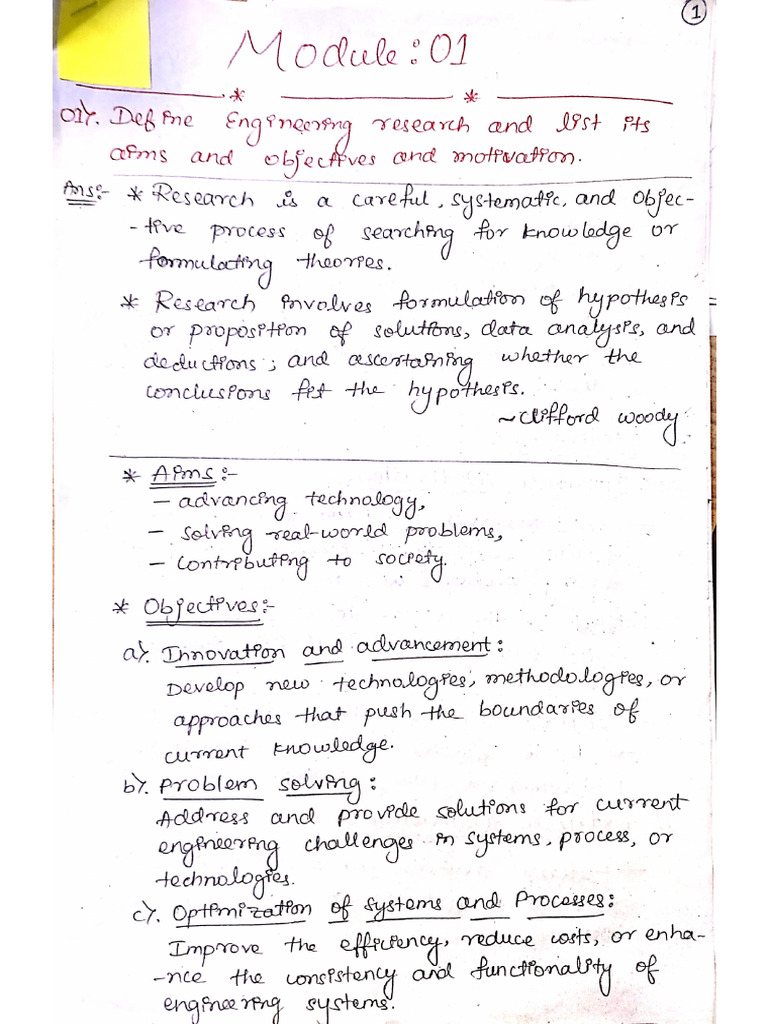 1
Module:01
01). Define Engineering research and list its
aims and objectives and motivation.
Ans:- * Research is a careful, systematic, and objec-
-tive process of searching for knowledge or
formulating theories.
* Research involves formulation of hypothesis
or proposition of solutions, data analysis, and
deductions; and ascertaining whether the
conclusions fit the hypothesis.
~Clifford Woody.
* Aims:-
- advancing technology,
- solving real-world problems,
- contributing to society.
* Objectives:-
a). Innovation and advancement:
Develop new technologies, methodologies, or
approaches that push the boundaries of
current knowledge.
b). Problem solving:
Address and provide solutions for current
engineering challenges in systems, process, or
technologies.
c). Optimization of systems and Processes:
Improve the efficiency, reduce costs, or enha-
-nce the consistency and functionality of
engineering systems.